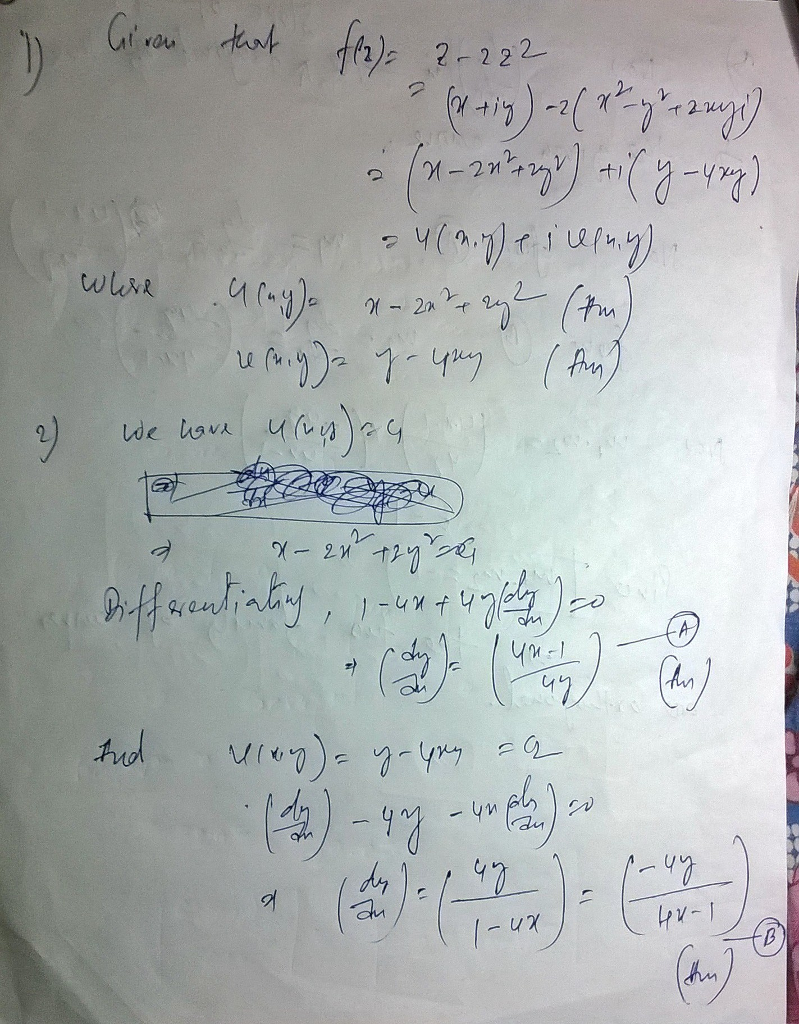 1) Given that f(z) = z - 2z2
= (x + iy) - 2(x² - y² + 2xyi)
= (x - 2x² + 2y²) + i(y - 4xy)
= u(x,y) + i v(x,y)
where u(x,y) = x - 2x² + 2y² (Ans)
v(x,y) = y - 4xy (Ans)
2) we have u(x,y) = c₁
⇒ x - 2x² + 2y² = c₁
Differentiating, 1 - 4x + 4y(dy/dx) = 0
⇒ (dy/dx) = (4x-1/4y) — A
(Ans)
And v(x,y) = y - 4xy = c₂
(dy/dx) - 4y - 4x(dy/dx) = 0
⇒ (dy/dx) = (4y/1-4x) = (-4y/4x-1)
— B
(Ans)